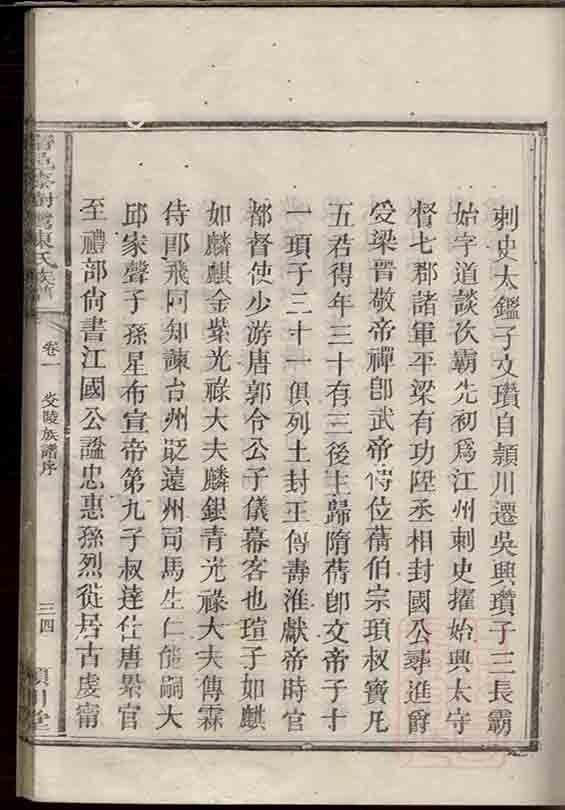 刺史太鑑子文瓚自頴川遷吳興瓚子三長霸
始字道談次霸先初爲江州刺史擢始興太守
督七郡諸軍平梁有功陞丞相封國公尋進爵
受梁晋敬帝禪卽武帝傳位蒨伯宗頊叔寳凡
五君得年三十有三後主歸隋蒨卽文帝子十
一頊子三十一俱列土封王傳壽淮獻帝時官
都督使少游唐郭令公子儀幕客也瑄子如麒
如麟麒金紫光祿大夫麟銀青光祿大夫傳霖
侍郎飛同知諫台州貶遠州司馬生仁能嗣大
邱家聲子孫星布宣帝第九子叔達仕唐累官
至禮部尙書江國公諡忠惠孫烈徙居古虔甯
陳氏族譜
卷一
炎陵族譜序
三四